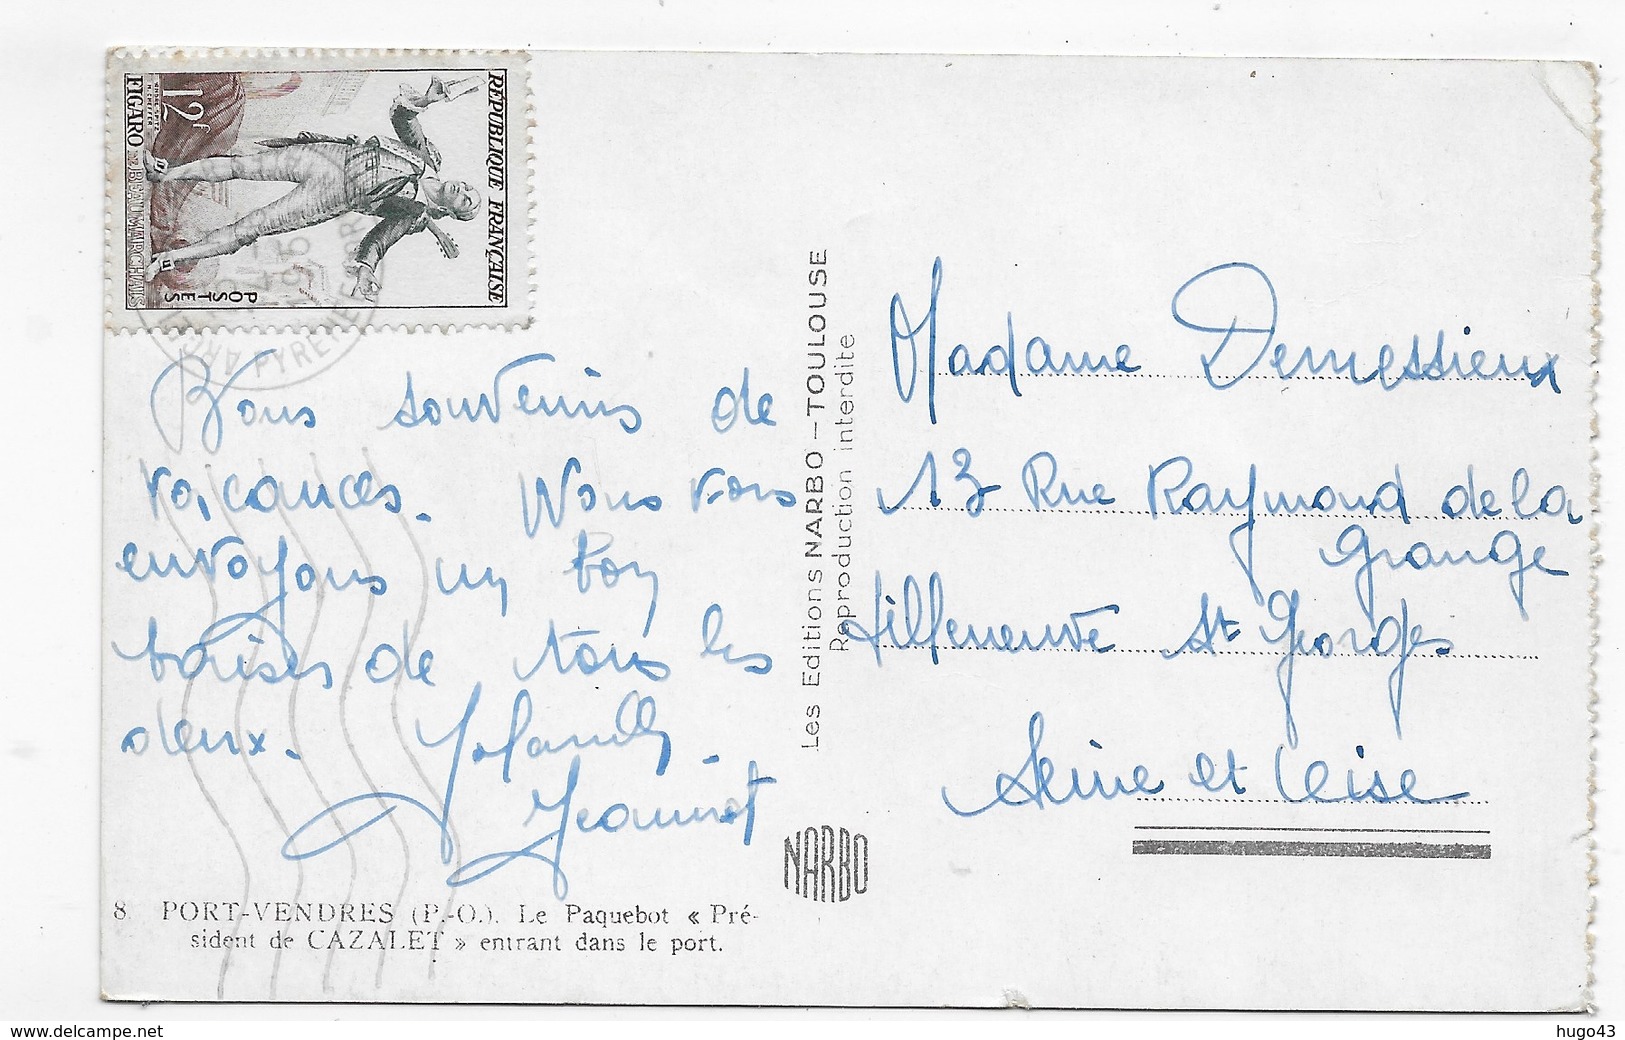 RÉPUBLIQUE FRANÇAISE
12f
POSTES
FIGARO DE BEAUMARCHAIS
PYRENEES OR
Bons souvenirs de
vacances. Nous vous
envoyons un bon
baisés de tous les
deux. Yolande
Jeannot
8. PORT-VENDRES (P.-O.). Le Paquebot « Pré-
sident de CAZALET » entrant dans le port.
Les Editions NARBO — TOULOUSE
Reproduction interdite
NARBO
Madame Demessieux
13 Rue Raymond de la
Grange
Villeneuve St Georges
Seine et Oise
www.delcampe.net
hugo43